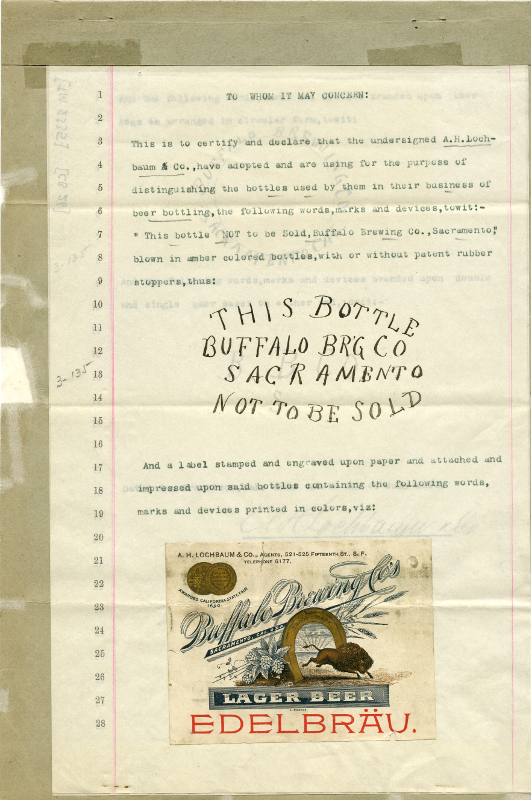 TO WHOM IT MAY CONCERN:
This is to certify and declare that the undersigned A.H.Loch-
baum & Co.,have adopted and are using for the purpose of
distinguishing the bottles used by them in their business of
beer bottling,the following words,marks and devices,towit:-
" This bottle NOT to be Sold,Buffalo Brewing Co.,Sacramento,"
blown in amber colored bottles,with or without patent rubber
stoppers,thus:
THIS BOTTLE
BUFFALO BRG CO
SACRAMENTO
NOT TO BE SOLD
3-135
3-135
And a label stamped and engraved upon paper and attached and
impressed upon said bottles containing the following words,
marks and devices printed in colors,viz:
A. H. LOCHBAUM & CO., AGENTS, 521-525 FIFTEENTH ST., S. F.
TELEPHONE 6177.
AWARDED CALIFORNIA STATE FAIR
1890.
Buffalo Brewing Co's
SACRAMENTO, CAL. U.S.A.
LAGER BEER
EDELBRÄU.
1
2
3
4
5
6
7
8
9
10
11
12
13
14
15
16
17
18
19
20
21
22
23
24
25
26
27
28